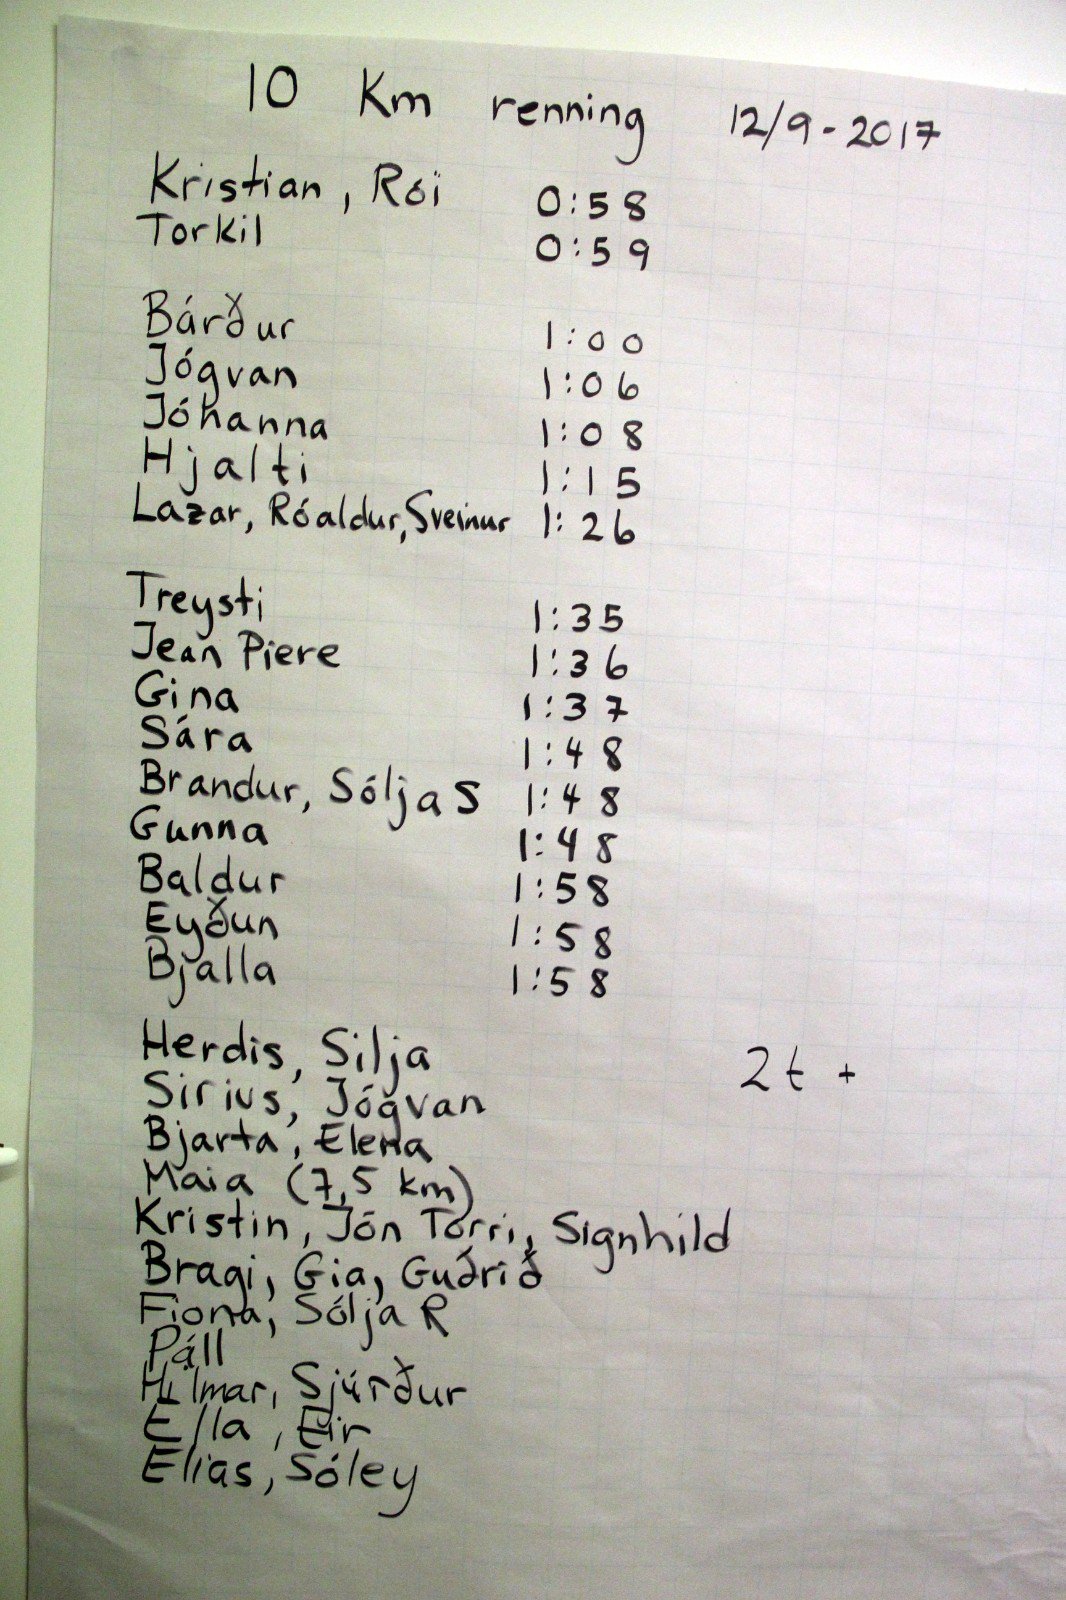 10 Km renning 12/9-2017
Kristian, Rói 0:58
Torkil 0:59
Bárður 1:00
Jógvan 1:06
Jóhanna 1:08
Hjalti 1:15
Lazar, Róaldur, Sveinur 1:26
Treysti 1:35
Jean Piere 1:36
Gina 1:37
Sára 1:48
Brandur, Sólja S 1:48
Gunna 1:48
Baldur 1:58
Eyðun 1:58
Bjalla 1:58
Herdis, Silja 2t +
Sirius, Jógvan
Bjarta, Elena
Maia (7,5 km)
Kristin, Jón Torri, Signhild
Bragi, Gia, Guðrið
Fiona, Sólja R
Páll
Hilmar, Sjúrður
Ella, Eir
Elias, Sóley